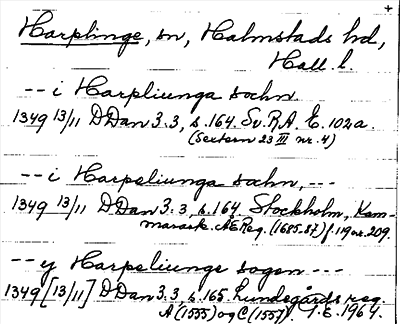 +
Harplinge, sn, Halmstads hd,
Hall. l.
-- i Harpliunga sochn
1349 13/11 DDan 3.3, s. 164. Sv. R.A. E. 102a.
(Sextern 23 III nr. 4)
-- i Harpeliunga sochn, ---
1349 13/11 DDan 3.3, s. 164. Stockholm, Kam-
marark. ÆEReg. (1685.87) f. 119 nr. 209.
-- y Harpeliunge sogen ---
1349 [13/11] DDan 3.3, s. 165. Lundegårds reg.
A (1555) og C (1557). T.E. 1964.